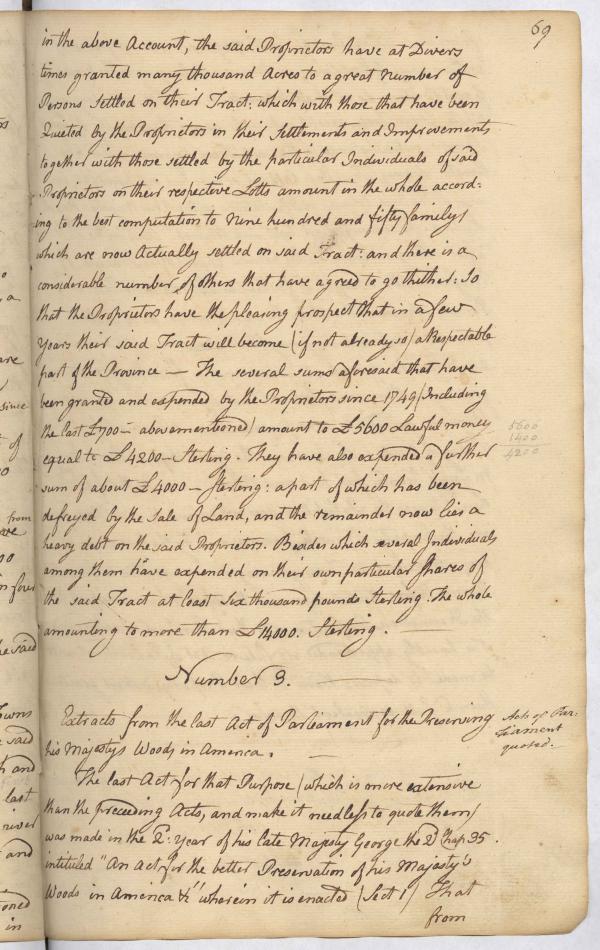 69
in the above Account, the said Proprietors have at Divers
times granted many thousand Acres to a great Number of
Persons settled on their Tract: which with those that have been
Quieted by the Proprietors in their Settlements and Improvements
together with those settled by the particular Individuals of said
Proprietors on their respective Lotts amount in the whole accord:
ing to the best computation to Nine hundred and fifty familys
which are now Actually settled on said Tract: and there is a
considerable number of others that have agreed to go thither: So
that the Proprietors have the pleasing prospect that in a few
years their said Tract will become (if not already so) a Respectable
part of the Province — The several sums aforesaid that have
been granted and expended by the Proprietors since 1749 (Including
the last £700 — abovementioned) amount to £5600 Lawful money
equal to £4200 — Sterling. They have also expended a further
sum of about £4000 — Sterling: a part of which has been
defreyed by the Sale of Land, and the remainder now lies a
heavy debt on the said Proprietors. Besides which several Individuals
among them have expended on their own particular Shares of
the said Tract at least Six thousand pounds Sterling. The whole
amounting to more than £14000. Sterling. —
5600
1400
4200
Number 3. —
Extracts from the last Act of Parliament for the Preserving
his Majestys Woods in America. —
Acts of Par:
liament
quoted.
The last Act for that Purpose (which is more extensive
than the preceeding Acts, and make it needless to quote them)
was made in the 2d. Year of his late Majesty George the 2d Chap 35.
intituled "An Act for the better Preservation of his Majesty's
Woods in America &c" wherein it is enacted (Sect 1) That
from